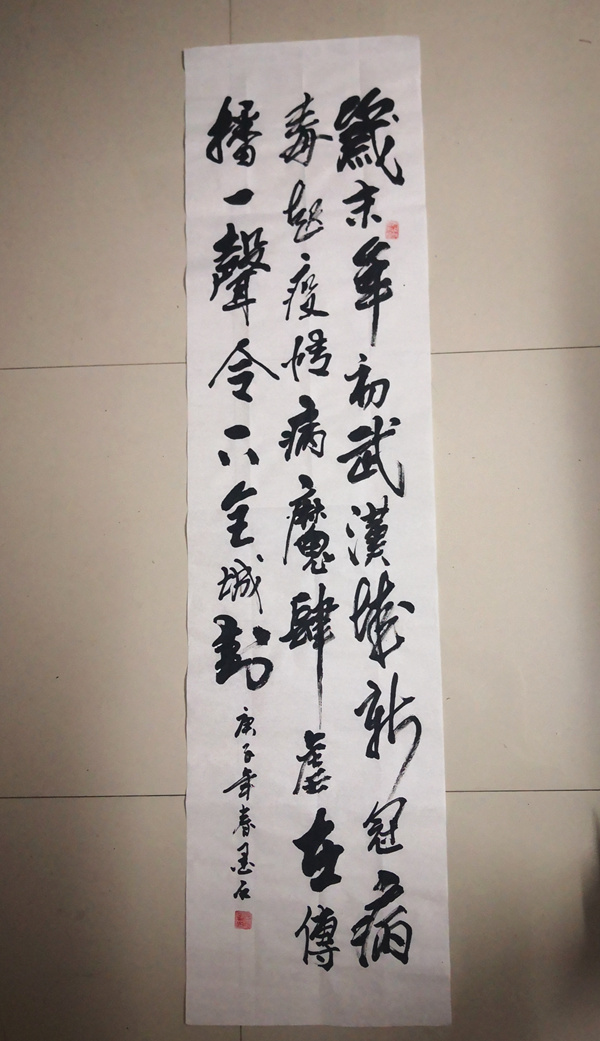 歲末年初武漢城新冠病
毒起疫情病魔肆虐在傳
播一聲令下全城封
庚子年春墨石